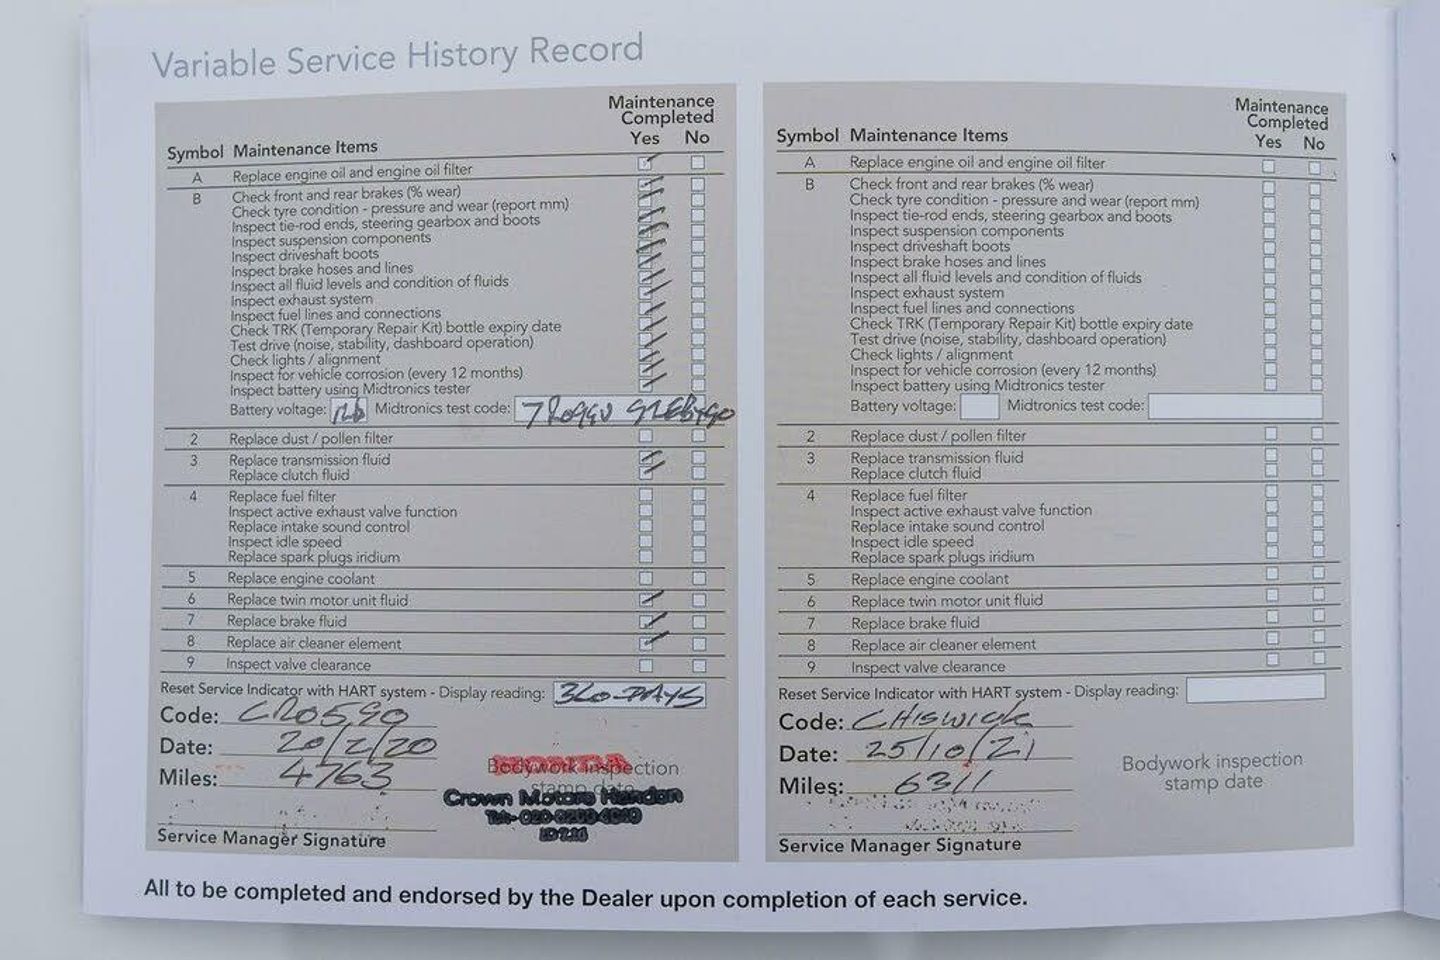 Variable Service History Record
Maintenance
Completed
Symbol Maintenance Items Yes No
A Replace engine oil and engine oil filter
B Check front and rear brakes (% wear)
Check tyre condition - pressure and wear (report mm)
Inspect tie-rod ends, steering gearbox and boots
Inspect suspension components
Inspect driveshaft boots
Inspect brake hoses and lines
Inspect all fluid levels and condition of fluids
Inspect exhaust system
Inspect fuel lines and connections
Check TRK (Temporary Repair Kit) bottle expiry date
Test drive (noise, stability, dashboard operation)
Check lights / alignment
Inspect for vehicle corrosion (every 12 months)
Inspect battery using Midtronics tester
Battery voltage: Midtronics test code:
2 Replace dust / pollen filter
3 Replace transmission fluid
Replace clutch fluid
4 Replace fuel filter
Inspect active exhaust valve function
Replace intake sound control
Inspect idle speed
Replace spark plugs iridium
5 Replace engine coolant
6 Replace twin motor unit fluid
7 Replace brake fluid
8 Replace air cleaner element
9 Inspect valve clearance
Reset Service Indicator with HART system - Display reading: 360-DAYS
Code: CR0590
Date: 20/2/20
Miles: 4763
HONDA
Bodywork inspection
stamp date
Crown Motors Hendon
Service Manager Signature
Maintenance
Completed
Symbol Maintenance Items Yes No
A Replace engine oil and engine oil filter
B Check front and rear brakes (% wear)
Check tyre condition - pressure and wear (report mm)
Inspect tie-rod ends, steering gearbox and boots
Inspect suspension components
Inspect driveshaft boots
Inspect brake hoses and lines
Inspect all fluid levels and condition of fluids
Inspect exhaust system
Inspect fuel lines and connections
Check TRK (Temporary Repair Kit) bottle expiry date
Test drive (noise, stability, dashboard operation)
Check lights / alignment
Inspect for vehicle corrosion (every 12 months)
Inspect battery using Midtronics tester
Battery voltage: Midtronics test code:
2 Replace dust / pollen filter
3 Replace transmission fluid
Replace clutch fluid
4 Replace fuel filter
Inspect active exhaust valve function
Replace intake sound control
Inspect idle speed
Replace spark plugs iridium
5 Replace engine coolant
6 Replace twin motor unit fluid
7 Replace brake fluid
8 Replace air cleaner element
9 Inspect valve clearance
Reset Service Indicator with HART system - Display reading:
Code: CHISWICK
Date: 25/10/21
Miles: 6311
Bodywork inspection
stamp date
Service Manager Signature
All to be completed and endorsed by the Dealer upon completion of each service.